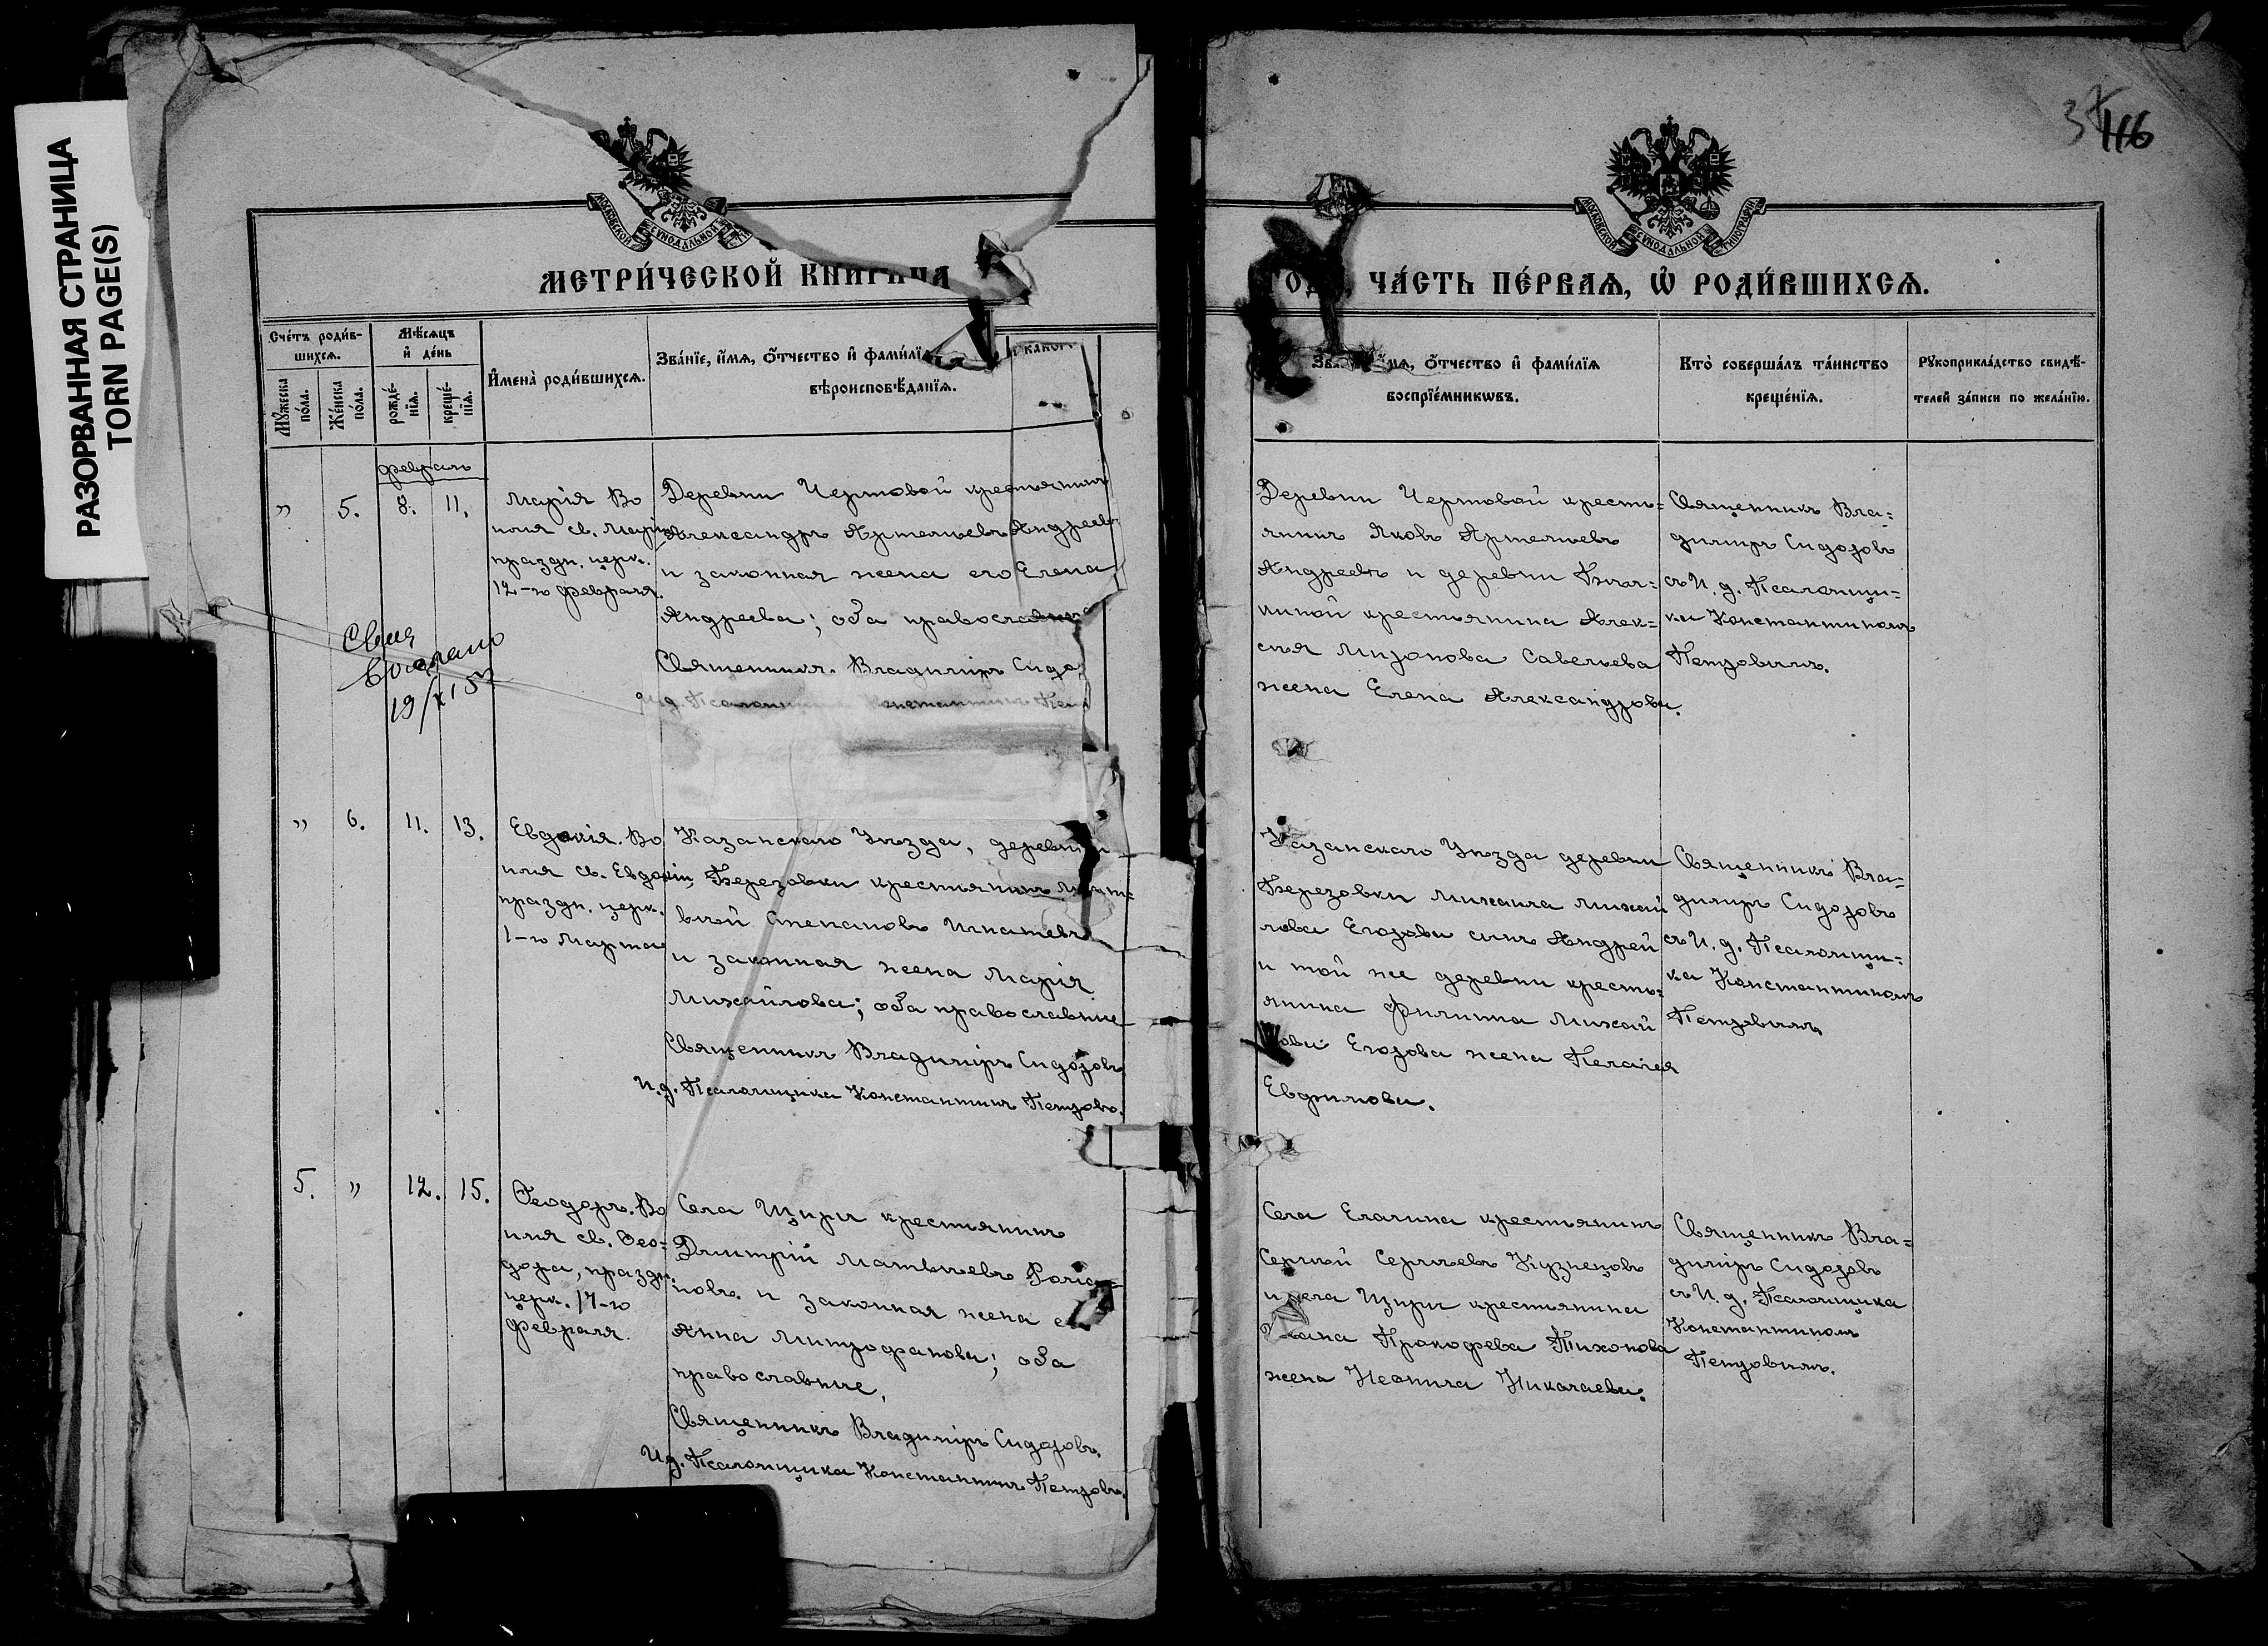 РАЗОРВАННАЯ СТРАНИЦА
TORN PAGE(S)
37
116
МОСКОВСКОЙ СѴНОДАЛЬНОЙ
МОСКОВСКОЙ СѴНОДАЛЬНОЙ ТИПОГРАФІИ
МЕТРИ́ЧЕСКОЙ КНИГИ НА
ГОДЪ, ЧА́СТЬ ПЕ́РВАѦ, Ѡ҆ РОДИ́ВШИХСѦ.
Сче́тъ роди́в-
шихсѧ.
Мꙋжеска по́ла.
Же́нска по́ла.
Мѣ́сѧцъ
и҆ де́нь
рожде́-
нїѧ.
креще́-
нїѧ.
И҆мена̀ роди́вшихсѧ.
Зва́нїе, и҆́мѧ, ѻ҆́тчество и҆ фами́лїѧ
вѣроисповѣ́данїѧ.
Зва́ и҆́мѧ, ѻ҆́тчество и҆ фами́лїѧ
воспрїе́мникѡвъ.
Кто̀ соверша́лъ та́инство
креще́нїѧ.
Рꙋкоприкла́дство свидѣ́-
телей за́писи по жела́нїю.
Февраль
" 5. 8. 11.
Марія Во
имя св. Маріи
праздн. церк.
12-го февраля.
Деревни Чертовой крестьянинъ
Александръ Артемьевъ Андреевъ
и законная жена его Елена
Андреева; оба православные
Священникъ Владиміръ Сидо
И.д. Псаломщ Константинъ Пет
Деревни Чертовой кресть=
янинъ Яковъ Артемьевъ
Андреевъ и деревни
киной крестьянина Алек=
сѣя Миронова Савельева
жена Елена Александрова.
Священникъ Вла=
диміръ Сидоровъ
съ И. д. Псаломщи=
ка Константиномъ
Петровымъ.
19/XI 53
" 6. 11. 13.
Евдокія. Во
имя св. Евдокіи,
праздн. церк.
1-го Марта
Казанскаго Уѣзда, деревни
Березовки крестьянинъ Мат=
вѣй Степановъ Игнатьевъ
и законная жена Марія
Михайлова; оба православные
Священникъ Владиміръ Сидоровъ
И.д. Псаломщика Константинъ Петровъ.
Казанскаго Уѣзда деревни
Березовки Михаила Михай
лова Егорова сынъ Андрей
и той же деревни кресть=
янина Филиппа Михай
лова Егорова жена Пелагея
Евфимова.
Священникъ Вла=
диміръ Сидоровъ
съ И. д. Псаломщи=
ка Константиномъ
Петровымъ
5. " 12. 15.
Ѳеодоръ. Во
имя св. Ѳео=
дора, праздн.
церк. 17-го
февраля.
Села Щири крестьянинъ
Дмитрій Матвѣевъ
новъ и законная жена е
Анна Митрофанова; оба
православные,
Священникъ Владиміръ Сидоровъ.
И.д. Псаломщика Константинъ Петровъ.
Села Елагина крестьянинъ
Сергѣй Сергѣевъ Кузнецовъ
и села Щири крестьянина
Ивана Прокофева Тихонова
жена Неонила Николаева.
Священникъ Вла=
диміръ Сидоровъ
съ И. д. Псаломщика
Константиномъ
Петровымъ.